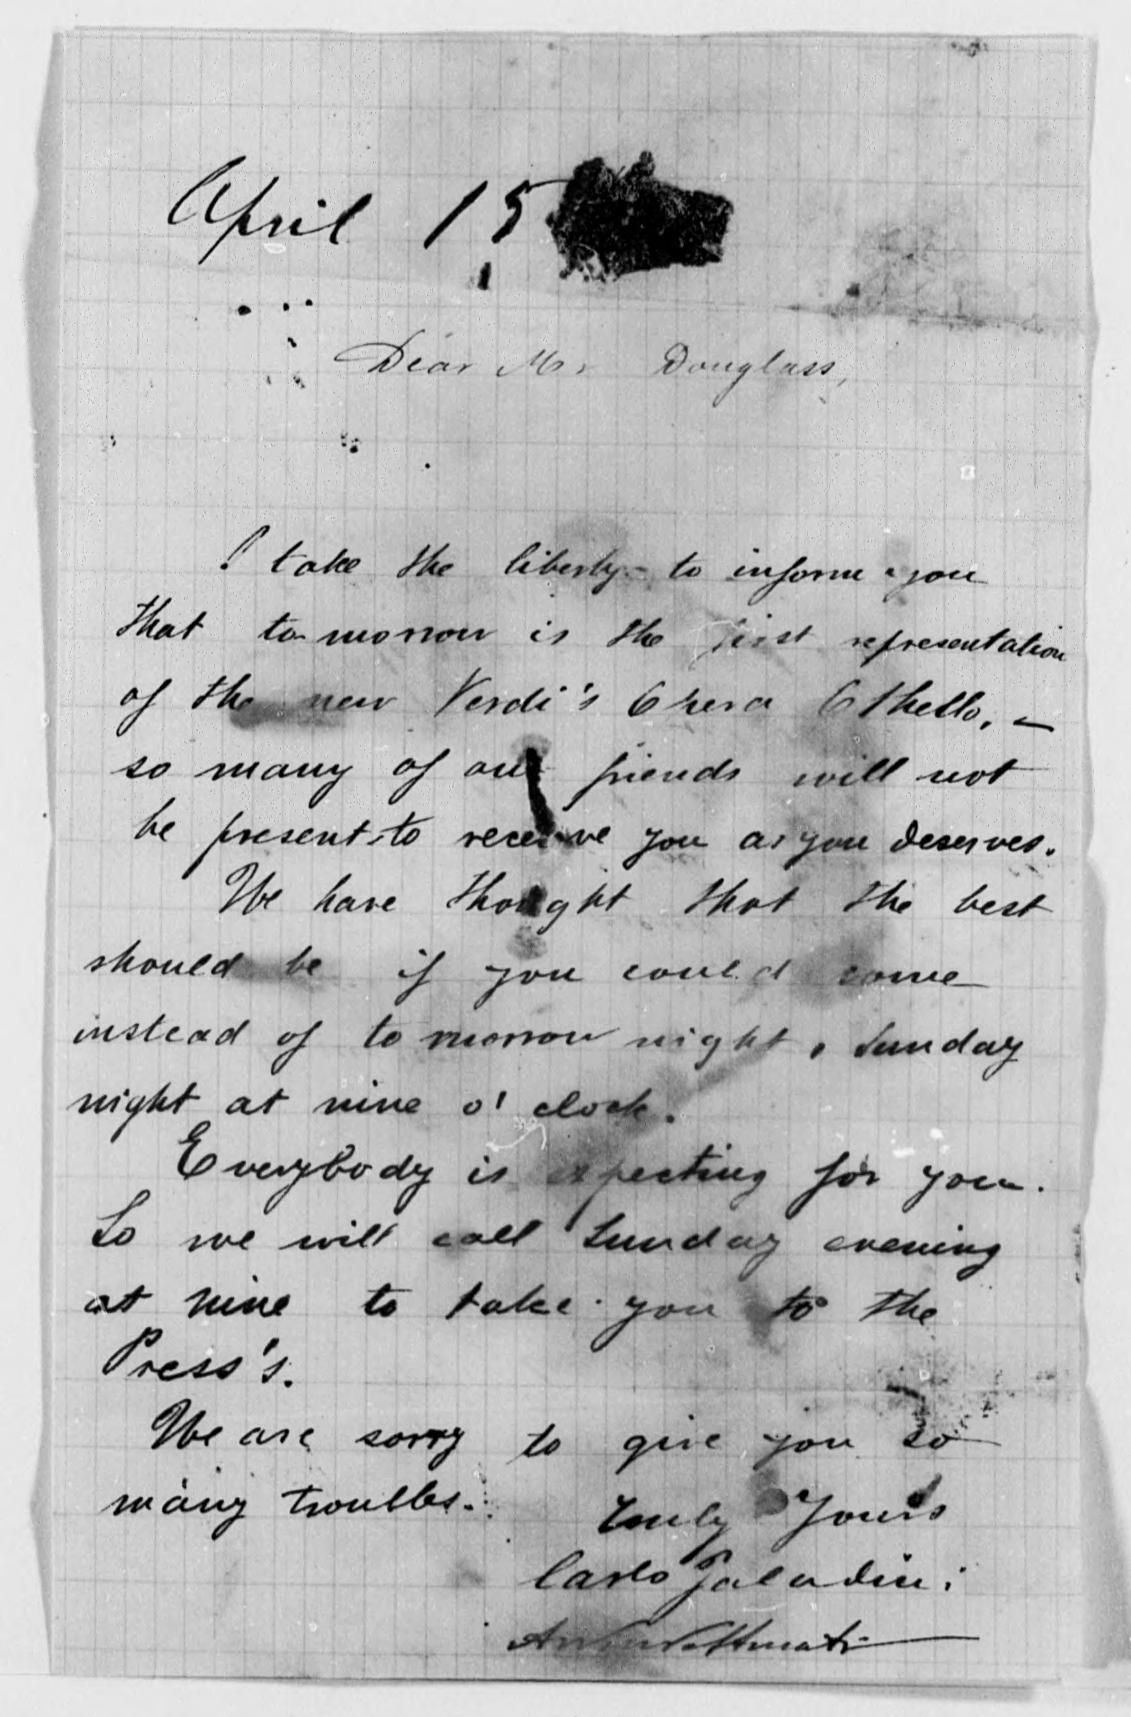 April 15
Dear Mr Douglass,
I take the liberty to inform you
that to morrow is the first representation
of the new Verdi's Opera Othello, —
so many of our friends will not
be present to receive you as you deserves.
We have thought that the best
should be if you could come
instead of to morrow night, Sunday
night at nine o'clock.
Everybody is expecting for you.
So we will call Sunday evening
at nine to take you to the
Press's.
We are sorry to give you so
many troubles.
Truly Yours
Carlo Paladini